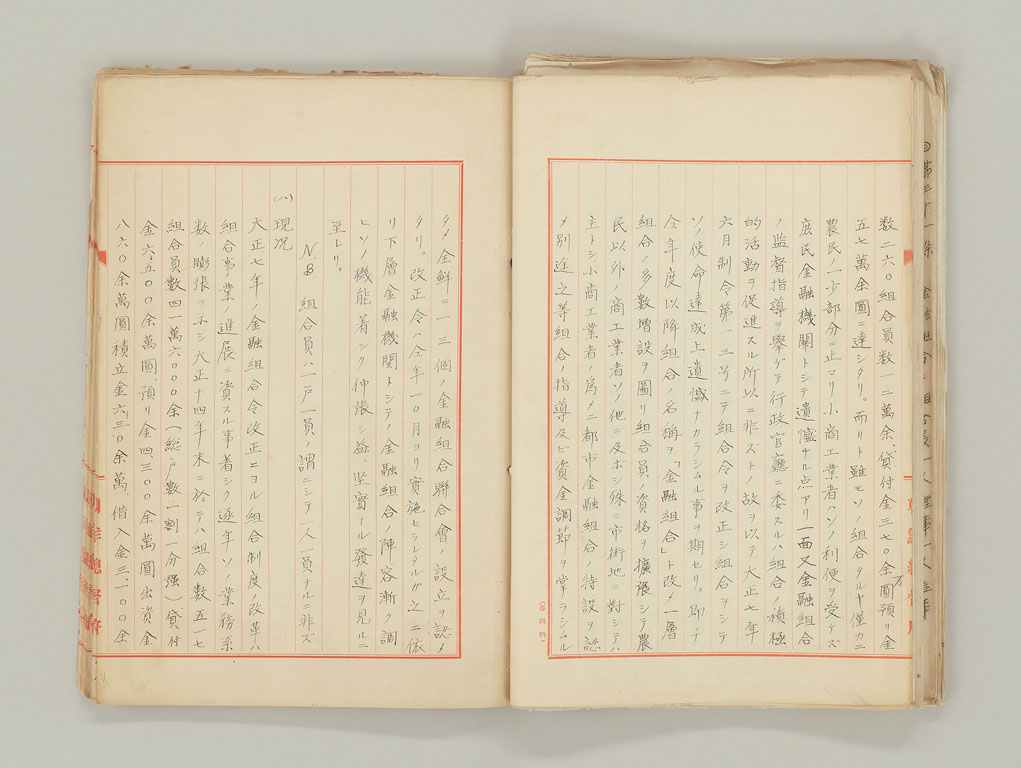 数二六〇組合員数一二萬余、貸付金三七〇余萬圓預リ金
五七萬余圓ニ達シタリ。而リト雖モソノ組合タルヤ僅カニ
農民ノ一少部分ニ止マリ小商工業者ハソノ利便ヲ受ケズ
庶民金融機關トシテ遺憾ナル点アリ一面又金融組合
ノ監督指導ヲ擧ゲテ行政官廳ニ委スルハ組合ノ積極
的活動ヲ促進スル所以ニ非ズトノ故ヲ以テ大正七年
六月制令第一三号ニテ組合令ヲ改正シ組合ヲシテ
ソノ使命達成上遺憾ナカラシムル事ヲ期セリ。即チ
仝年度以降組合ノ名稱ヲ「金融組合」ト改メ一層
組合ノ多数増設ヲ圖リ組合員ノ資格ヲ擴張シテ農
民以外ノ商工業者ソノ他ニ及ボシ殊ニ市街地ニ對シテハ
主トシ小商工業者ノ為メニ都市金融組合ノ特設ヲ認
メ別途之等組合ノ指導及ビ資金調節ヲ掌ラシムル
タメ全鮮ニ一三個ノ金融組合聯合會ノ設立ヲ認メ
タリ。改正令ハ仝年一〇月ヨリ實施セラレタルガ之ニ依
リ下層金融機関トシテノ金融組合ノ陣容漸ク調
ヒソノ機能着シク伸張シ益〻堅實ナル發達ヲ見ルニ
至レリ。
N.B 組合員ハ一戸一員ノ謂ニシテ一人一員ナルニ非ズ
(八)現况
大正七年ノ金融組合令改正ニヨル組合制度ノ改革ハ
組合事業ノ進展ニ資スル事著シク逐年ソノ業務系
数ノ膨張ヲ示シ大正十四年末ニ於テハ組合数五一七
組合員数四一萬六〇〇〇余(総戸数ノ一割一分强)貸付
金六五〇〇余萬圓、預リ金四三〇〇余萬圓出資金
八六〇余萬圓積立金六三〇余萬借入金三一〇〇余